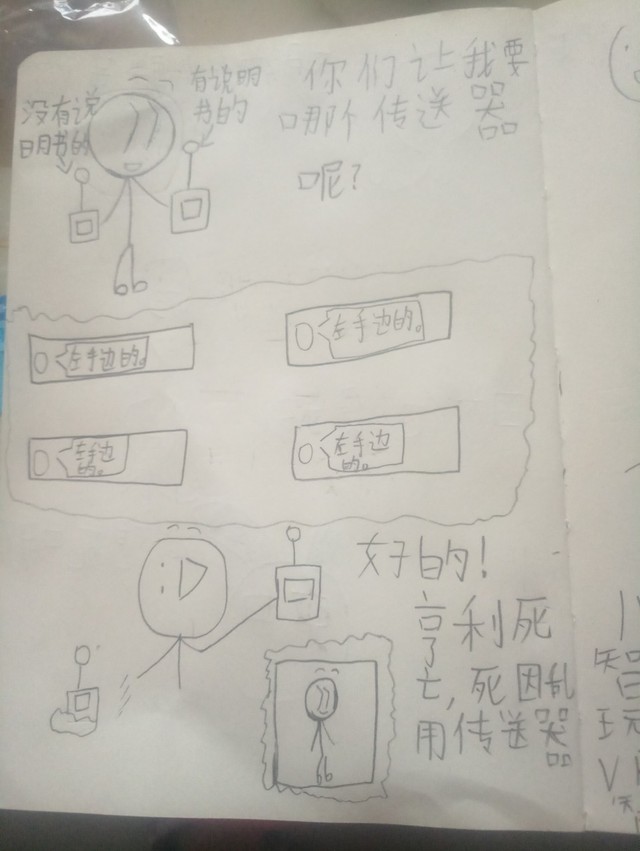 没有说
明书的
有说明
书的
你们让我要
哪个传送器
呢?
左手边的。
左手边的。
左手边
的。
左手边
的。
好的!
亨利死
亡,死因乱
用传送器